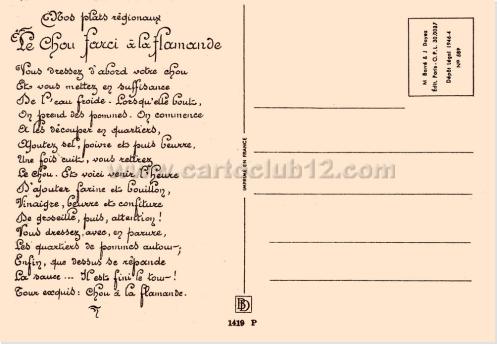 Nos plats régionaux
Le Chou farci à la flamande
Vous dressez d'abord votre chou
Et vous mettez en suffisance
De l'eau froide. Lorsqu'elle bout,
On prend des pommes. On commence
A les découper en quartiers,
Ajoutez sel, poivre et puis beurre,
Une fois cuit, vous retirez
Le chou. Et voici venir l'heure
D'ajouter farine et bouillon,
Vinaigre, beurre et confiture
De groseille, puis, attention !
Vous dressez, avec, en parure,
Les quartiers de pommes autour;
Enfin, que dessus se répande
La sauce ... Il est fini le tour !
Tour exquis : Chou à la flamande.
www.cartoclub12.com
IMPRIMÉ EN FRANCE
M. Barré & J. Dayez
Édit. Paris - O.P.L. 30.0087
Dépôt légal 1946-4
N° 889
BD
1419 P